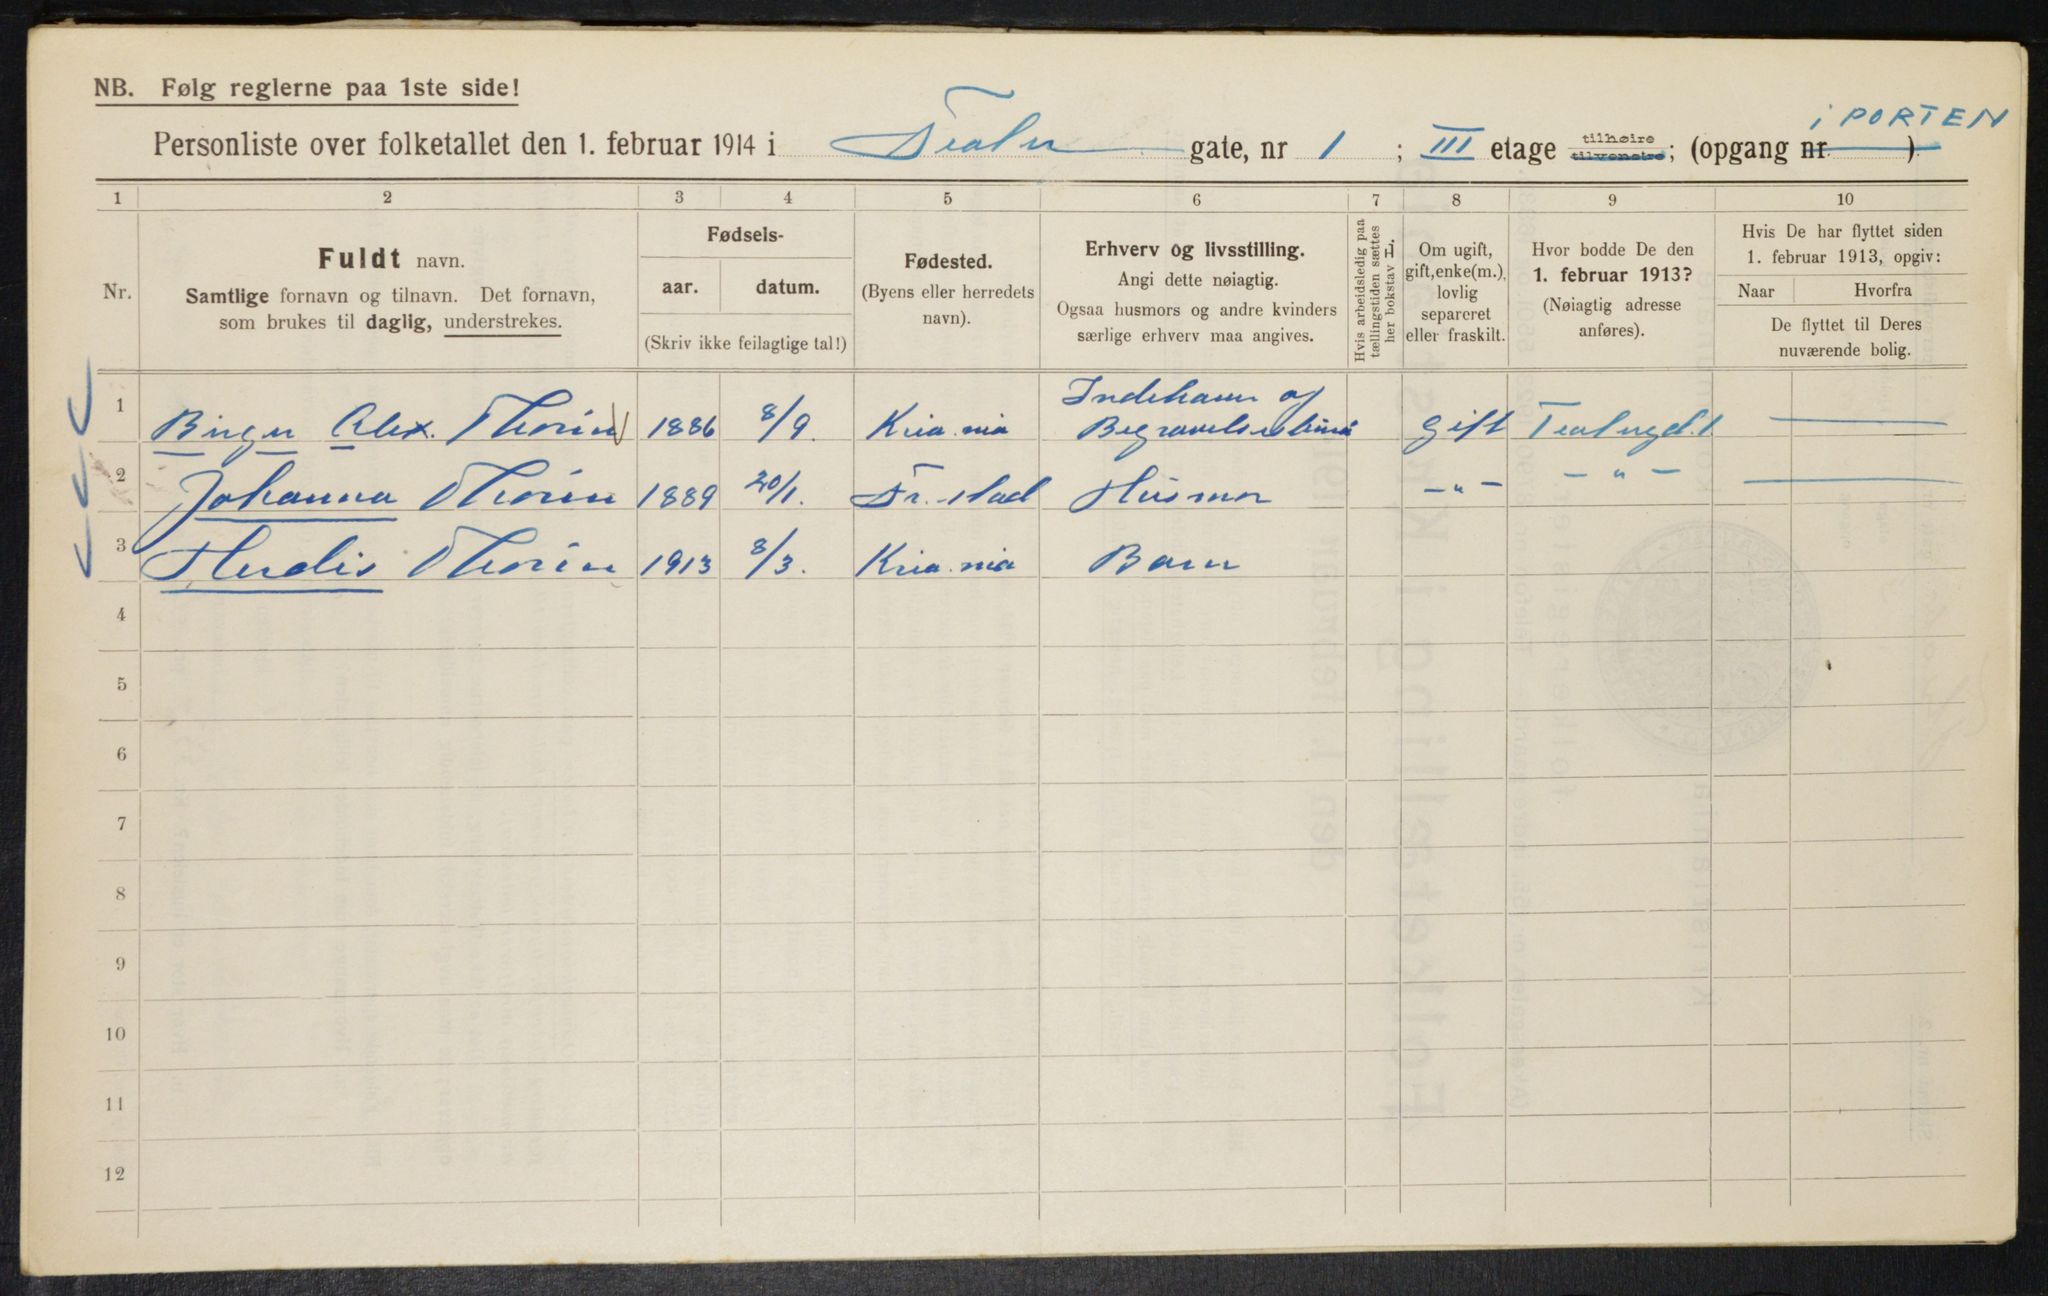 NB. Følg reglerne paa 1ste side!
i PORTEN
Personliste over folketallet den 1. februar 1914 i Teater gate, nr 1 ; III etage tilhøire tilvenstre; (opgang nr. )
1 2 3 4 5 6 7 8 9 10
Nr.
Fuldt navn.
Samtlige fornavn og tilnavn. Det fornavn,
som brukes til daglig, understrekes.
Fødsels-
aar. datum.
(Skriv ikke feilagtige tal!)
Fødested.
(Byens eller herredets
navn).
Erhverv og livsstilling.
Angi dette nøiagtig.
Ogsaa husmors og andre kvinders
særlige erhverv maa angives.
Hvis arbeidsledig paa
tællingstiden sættes
her bokstav L.
Om ugift,
gift, enke(m.),
lovlig
separeret
eller fraskilt.
Hvor bodde De den
1. februar 1913?
(Nøiagtig adresse
anføres).
Hvis De har flyttet siden
1. februar 1913, opgiv:
Naar Hvorfra
De flyttet til Deres
nuværende bolig.
1 Birger Alex. Thorin 1886 8/9. Kria.nia Indehaver af Begravelsesbirå Gift Teatergd. 1 —
2 Johanna Thorin 1889 20/1. Fr.stad Husmor – " – – " – —
3 Herdis Thorin 1913 8/3. Kria.nia Barn
4
5
6
7
8
9
10
11
12